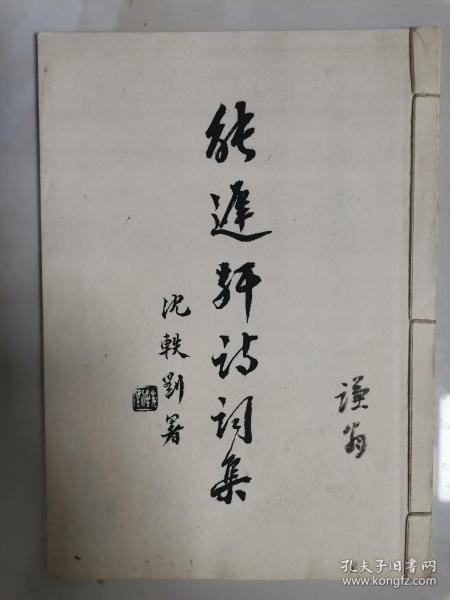 能遲軒诗词集
沈軼劉署
谦翁
孔夫子旧书网
www.kongfz.com